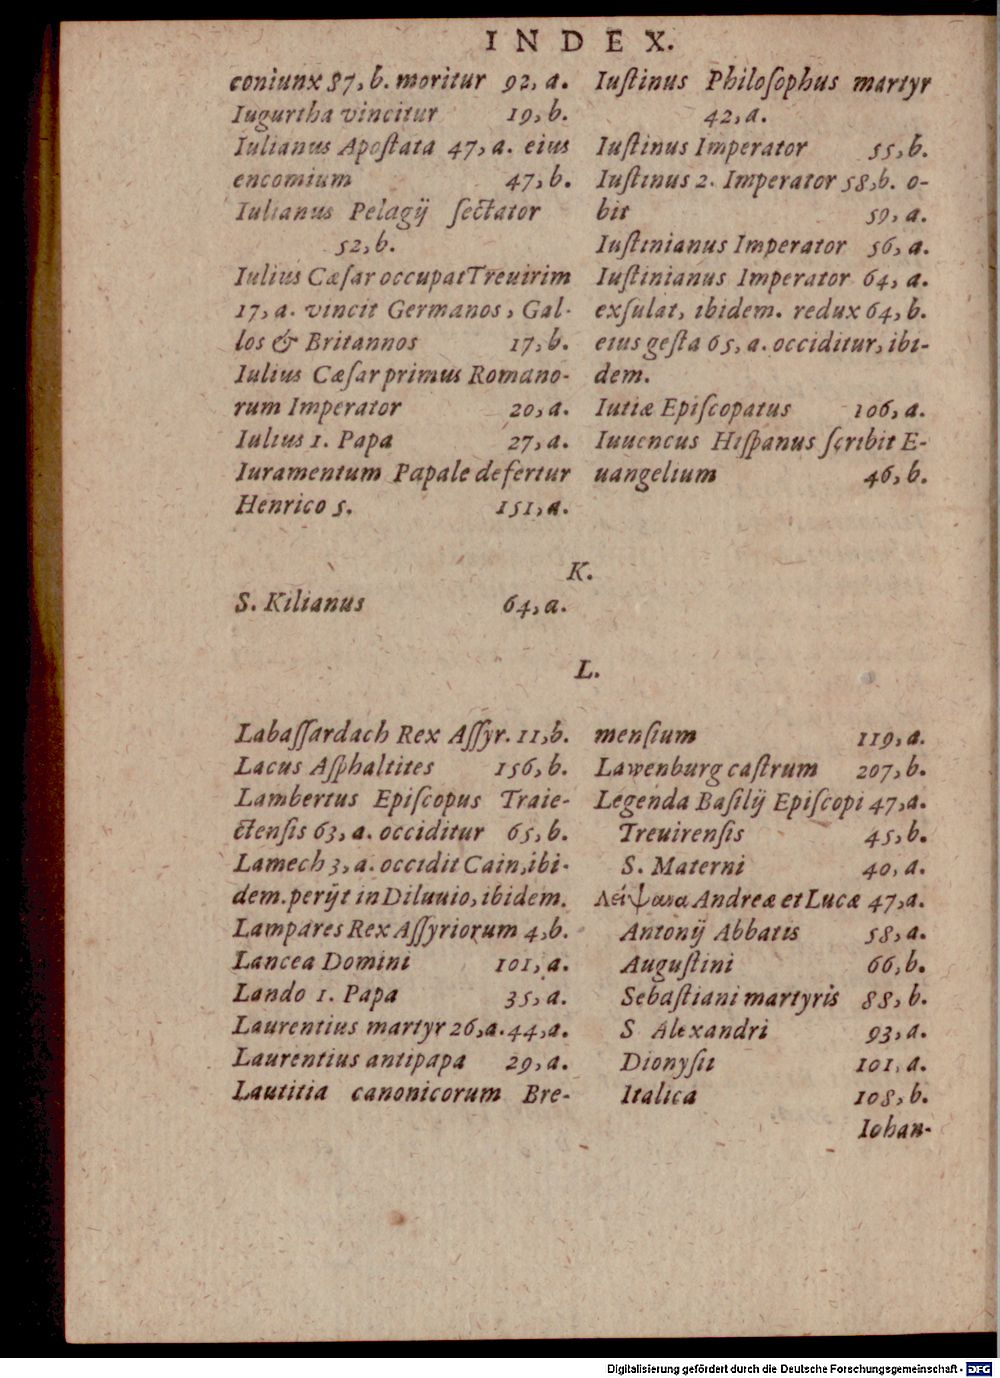 INDEX.
coniunx 87, b. moritur 92, a.
Iugurtha vincitur 19, b.
Iulianus Apoſtata 47, a. eius
encomium 47, b.
Iulianus Pelagij ſectator
52, b.
Iulius Cæſar occupat Treuirim
17, a. vincit Germanos, Gal-
los & Britannos 17, b.
Iulius Cæſar primus Romano-
rum Imperator 20, a.
Iulius 1. Papa 27, a.
Iuramentum Papale defertur
Henrico 5. 151, a.
Iuſtinus Philoſophus martyr
42, a.
Iuſtinus Imperator 55, b.
Iuſtinus 2. Imperator 58, b. o-
bit 59, a.
Iuſtinianus Imperator 56, a.
Iuſtinianus Imperator 64, a.
exſulat, ibidem. redux 64, b.
eius geſta 65, a. occiditur, ibi-
dem.
Iutiæ Epiſcopatus 106, a.
Iuuencus Hiſpanus ſcribit E-
uangelium 46, b.
K.
S. Kilianus 64, a.
L.
Labaſſardach Rex Aſſyr. 11, b.
Lacus Aſphaltites 156, b.
Lambertus Epiſcopus Traie-
ctenſis 63, a. occiditur 65, b.
Lamech 3, a. occidit Cain, ibi-
dem. perijt in Diluuio, ibidem.
Lampares Rex Aſſyriorum 4, b.
Lancea Domini 101, a.
Lando 1. Papa 35, a.
Laurentius martyr 26, a. 44, a.
Laurentius antipapa 29, a.
Lautitia canonicorum Bre-
menſium 119, a.
Lawenburg caſtrum 207, b.
Legenda Baſilij Epiſcopi 47, a.
Treuirenſis 45, b.
S. Materni 40, a.
Λείψανα Andreæ et Lucæ 47, a.
Antonij Abbatis 58, a.
Auguſtini 66, b.
Sebaſtiani martyris 88, b.
S Alexandri 93, a.
Dionyſii 101, a.
Italica 108, b.
Iohan-
Digitalisierung gefördert durch die Deutsche Forschungsgemeinschaft - DFG